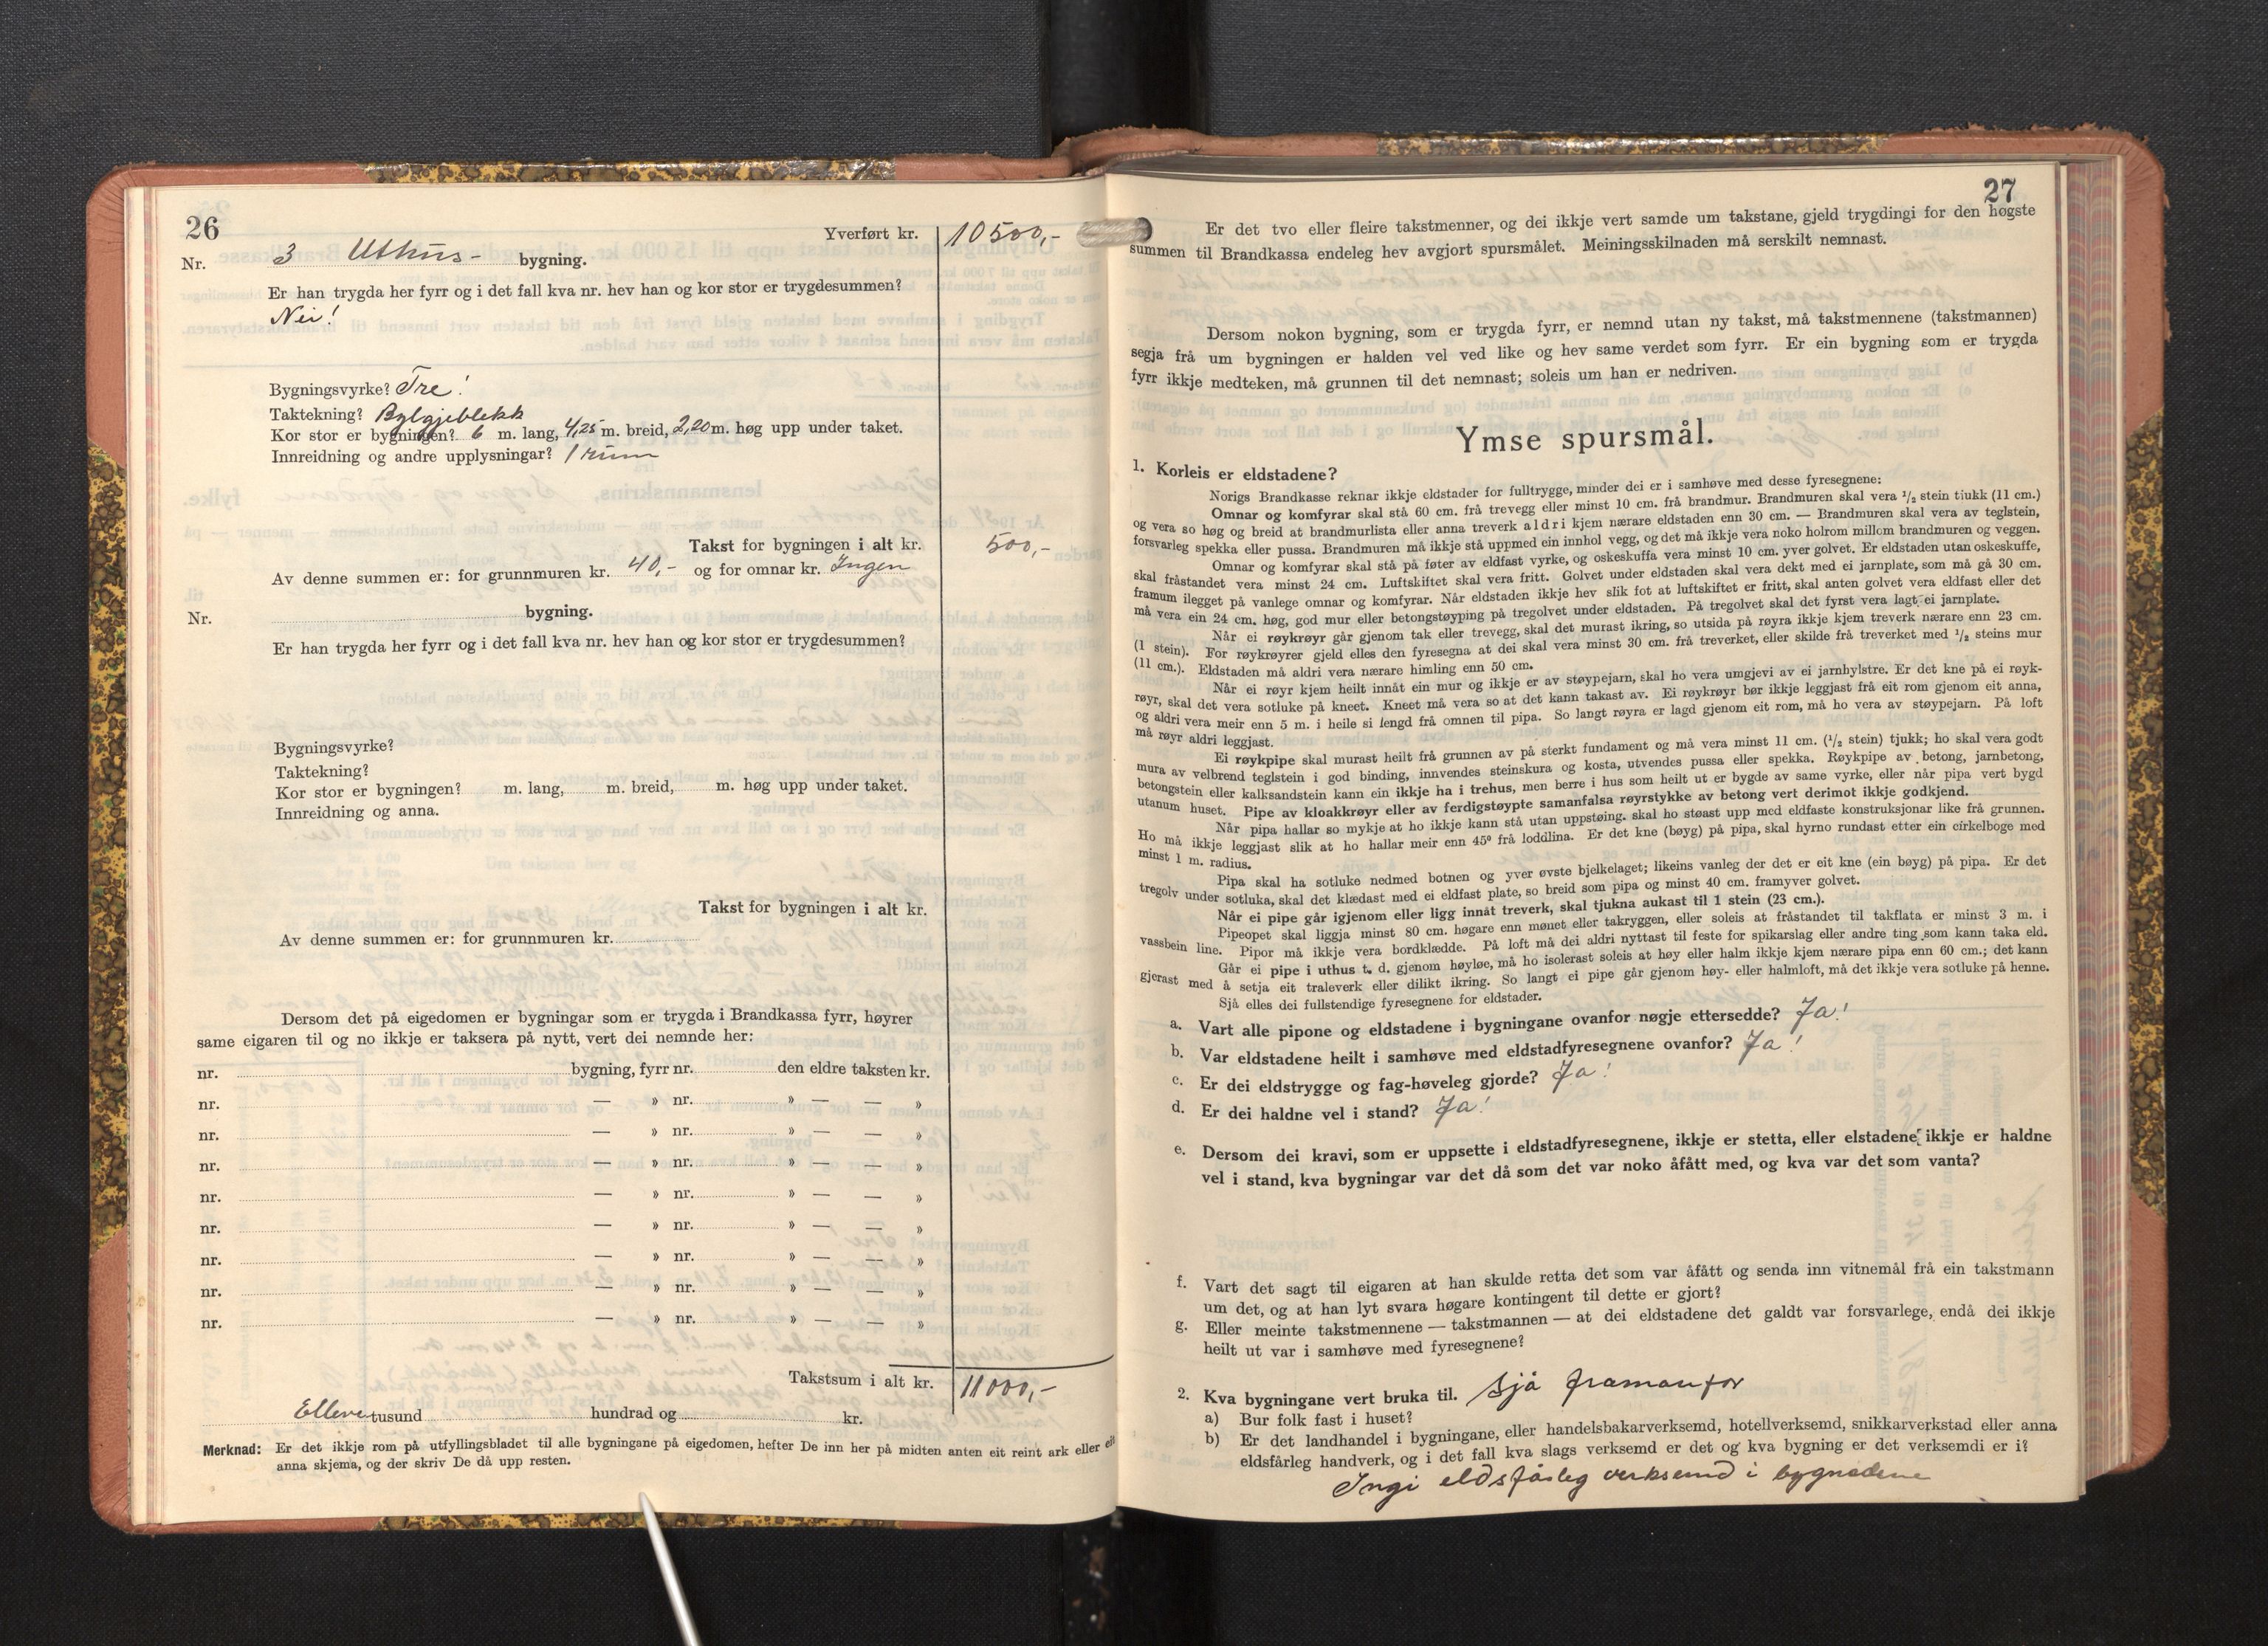 26
Yverført kr. 10500,-
Nr. 3 Uthus- bygning.
Er han trygda her fyrr og i det fall kva nr. hev han og kor stor er trygdesummen?
Nei!
Bygningsvyrke? Tre!
Taktekning? Bylgjeblekk
Kor stor er bygningen? 6 m. lang, 4,25 m. breid, 2,20 m. høg upp under taket.
Innreidning og andre upplysningar? 1 rum
Takst for bygningen i alt kr. 500,-
Av denne summen er: for grunnmuren kr. 40,- og for omnar kr. Ingen
Nr. bygning.
Er han trygda her fyrr og i det fall kva nr. hev han og kor stor er trygdesummen?
Bygningsvyrke?
Taktekning?
Kor stor er bygningen? m. lang, m. breid, m. høg upp under taket.
Innreidning og anna.
Takst for bygningen i alt kr.
Av denne summen er: for grunnmuren kr.
Dersom det på eigedomen er bygningar som er trygda i Brandkassa fyrr, høyrer
same eigaren til og no ikkje er taksera på nytt, vert dei nemnde her:
nr. bygning, fyrr nr. den eldre taksten kr.
nr. — » nr. » — — »
nr. — » nr. » — — »
nr. — » nr. » — — »
nr. — » nr. » — — »
nr. — » nr. » — — »
nr. — » nr. » — — »
nr. — » nr. » — — »
nr. — » nr. » — — »
Takstsum i alt kr. 11000,-
Elleve tusund hundrad og kr.
Merknad: Er det ikkje rom på utfyllingsbladet til alle bygningane på eigedomen, hefter De inn her på midten anten eit reint ark eller eit
anna skjema, og der skriv De då upp resten.
27
Er det tvo eller fleire takstmenner, og dei ikkje vert samde um takstane, gjeld trygdingi for den høgste
summen til Brandkassa endeleg hev avgjort spursmålet. Meiningsskilnaden må serskilt nemnast.
Dersom nokon bygning, som er trygda fyrr, er nemnd utan ny takst, må takstmennene (takstmannen)
segja frå um bygningen er halden vel ved like og hev same verdet som fyrr. Er ein bygning som er trygda
fyrr ikkje medteken, må grunnen til det nemnast; soleis um han er nedriven.
Ymse spursmål.
1. Korleis er eldstadene?
Norigs Brandkasse reknar ikkje eldstader for fulltrygge, minder dei er i samhøve med desse fyresegnene:
Omnar og komfyrar skal stå 60 cm. frå trevegg eller minst 10 cm. frå brandmur. Brandmuren skal vera 1/2 stein tjukk (11 cm.)
og vera so høg og breid at brandmurlista eller anna treverk aldri kjem nærare eldstaden enn 30 cm. — Brandmuren skal vera av teglstein,
forsvarleg spekka eller pussa. Brandmuren må ikkje stå uppmed ein innhol vegg, og det må ikkje vera noko holrom millom brandmuren og veggen.
Omnar og komfyrar skal stå på føter av eldfast vyrke, og oskeskuffa vera minst 10 cm. yver golvet. Er eldstaden utan oskeskuffe,
skal fråstandet vera minst 24 cm. Luftskiftet skal vera fritt. Golvet under eldstaden skal vera dekt med ei jarnplate, som må gå 30 cm.
framum ilegget på vanlege omnar og komfyrar. Når eldstaden ikkje hev slik fot at luftskiftet er fritt, skal anten golvet vera eldfast eller det
må vera ein 24 cm. høg, god mur eller betongstøyping på tregolvet under eldstaden. På tregolvet skal det fyrst vera lagt ei jarnplate.
Når ei røykrøyr går gjenom tak eller trevegg, skal det murast ikring, so utsida på røyra ikkje kjem treverk nærare enn 23 cm.
(1 stein). For røykrøyrer gjeld elles den fyresegna at dei skal vera minst 30 cm. frå treverket, eller skilde frå treverket med 1/2 steins mur
(11 cm.). Eldstaden må aldri vera nærare himling enn 50 cm.
Når ei røyr kjem heilt innåt ein mur og ikkje er av støypejarn, skal ho vera umgjevi av ei jarnhylstre. Er det kne på ei røyk-
røyr, skal det vera sotluke på kneet. Kneet må vera so at det kann takast av. Ei røykrøyr bør ikkje leggjast frå eit rom gjenom eit anna,
og aldri vera meir enn 5 m. i heile si lengd frå omnen til pipa. So langt røyra er lagd gjenom eit rom, må ho vera av støypejarn. På loft
må røyr aldri leggjast.
Ei røykpipe skal murast heilt frå grunnen av på sterkt fundament og må vera minst 11 cm. (1/2 stein) tjukk; ho skal vera godt
mura av velbrend teglstein i god binding, innvendes steinskura og kosta, utvendes pussa eller spekka. Røykpipe av betong, jarnbetong,
betongstein eller kalksandstein kann ein ikkje ha i trehus, men berre i hus som heilt ut er bygde av same vyrke, eller når pipa vert bygd
utanum huset. Pipe av kloakkrøyr eller av ferdigstøypte samanfalsa røyrstykke av betong vert derimot ikkje godkjend.
Når pipa hallar so mykje at ho ikkje kann stå utan uppstøing. skal ho støast upp med eldfaste konstruksjonar like frå grunnen.
Ho må ikkje leggjast slik at ho hallar meir enn 45° frå loddlina. Er det kne (bøyg) på pipa, skal hyrno rundast etter ein cirkelboge med
minst 1 m. radius.
Pipa skal ha sotluke nedmed botnen og yver øvste bjelkelaget; likeins vanleg der det er eit kne (ein bøyg) på pipa. Er det
tregolv under sotluka, skal det klædast med ei eldfast plate, so breid som pipa og minst 40 cm. framyver golvet.
Når ei pipe går igjenom eller ligg innåt treverk, skal tjukna aukast til 1 stein (23 cm.).
Pipeopet skal liggja minst 80 cm. høgare enn mønet eller takryggen, eller soleis at fråstandet til takflata er minst 3 m. i
vassbein line. Pipor må ikkje vera bordklædde. På loft må dei aldri nyttast til feste for spikarslag eller andre ting som kann taka eld.
Går ei pipe i uthus t. d. gjenom høyløe, må ho isolerast soleis at høy eller halm ikkje kjem nærare pipa enn 60 cm.; det kann
gjerast med å setja eit traleverk eller dilikt ikring. So langt ei pipe går gjenom høy- eller halmloft, må det ikkje vera sotluke på henne.
Sjå elles dei fullstendige fyresegnene for eldstader.
a. Vart alle pipone og eldstadene i bygningane ovanfor nøgje ettersedde? Ja!
b. Var eldstadene heilt i samhøve med eldstadfyresegnene ovanfor? Ja!
c. Er dei eldstrygge og fag-høveleg gjorde? Ja!
d. Er dei haldne vel i stand? Ja!
e. Dersom dei kravi, som er uppsette i eldstadfyresegnene, ikkje er stetta, eller elstadene ikkje er haldne
vel i stand, kva bygningar var det då som det var noko åfått med, og kva var det som vanta?
f. Vart det sagt til eigaren at han skulde retta det som var åfått og senda inn vitnemål frå ein takstmann
um det, og at han lyt svara høgare kontingent til dette er gjort?
g. Eller meinte takstmennene — takstmannen — at dei eldstadene det galdt var forsvarlege, endå dei ikkje
heilt ut var i samhøve med fyresegnene?
2. Kva bygningane vert bruka til. Sjå framanfor
a) Bur folk fast i huset?
b) Er det landhandel i bygningane, eller handelsbakarverksemd, hotellverksemd, snikkarverkstad eller anna
eldsfårleg handverk, og i det fall kva slags verksemd er det og kva bygning er det verksemdi er i?
Ingi eldsfårleg verksemd i bygnadene